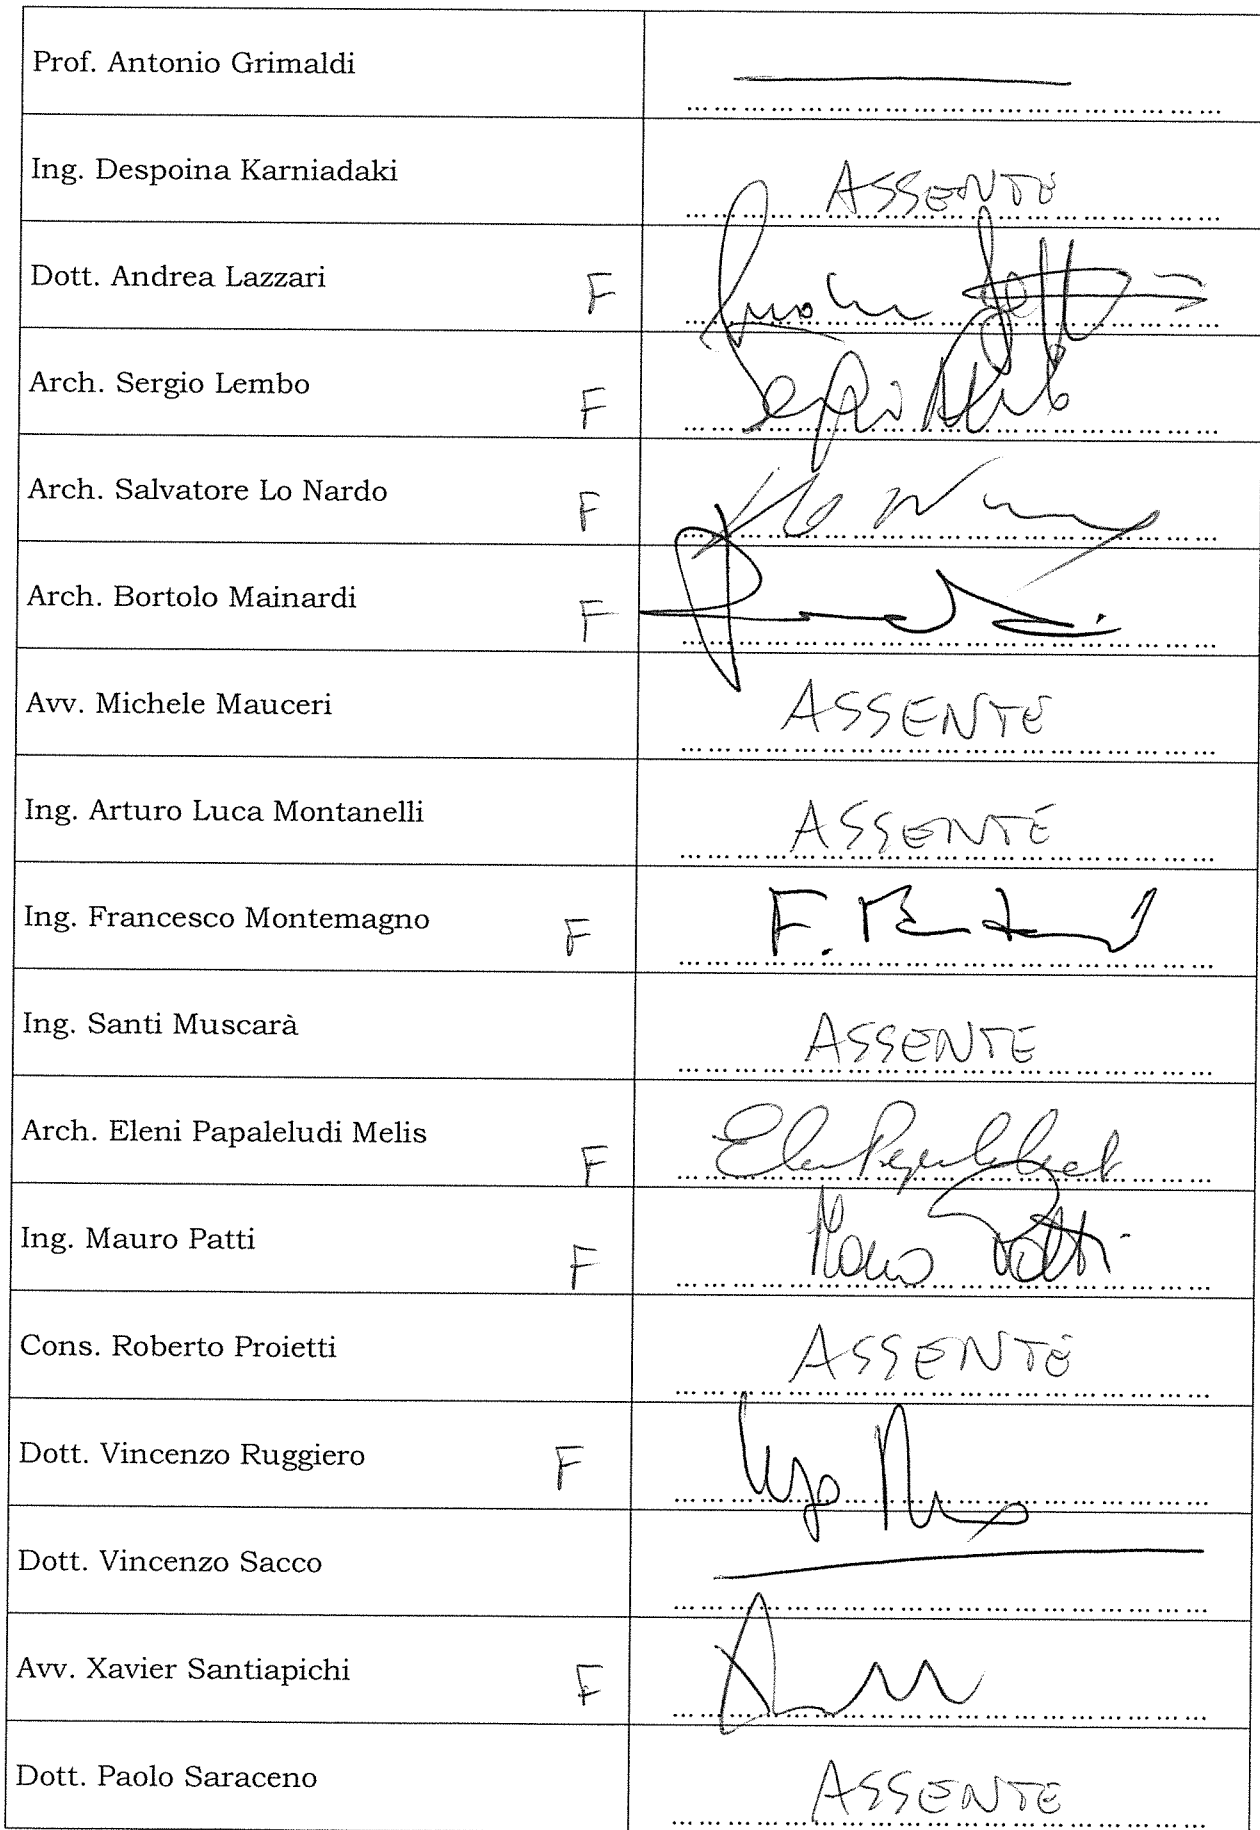 Prof. Antonio Grimaldi
Ing. Despoina Karniadaki ASSENTE
Dott. Andrea Lazzari F
Arch. Sergio Lembo F
Arch. Salvatore Lo Nardo F
Arch. Bortolo Mainardi F
Avv. Michele Mauceri ASSENTE
Ing. Arturo Luca Montanelli ASSENTE
Ing. Francesco Montemagno F F.
Ing. Santi Muscarà ASSENTE
Arch. Eleni Papaleludi Melis F
Ing. Mauro Patti F Mauro Patti
Cons. Roberto Proietti ASSENTE
Dott. Vincenzo Ruggiero F
Dott. Vincenzo Sacco
Avv. Xavier Santiapichi F
Dott. Paolo Saraceno ASSENTE